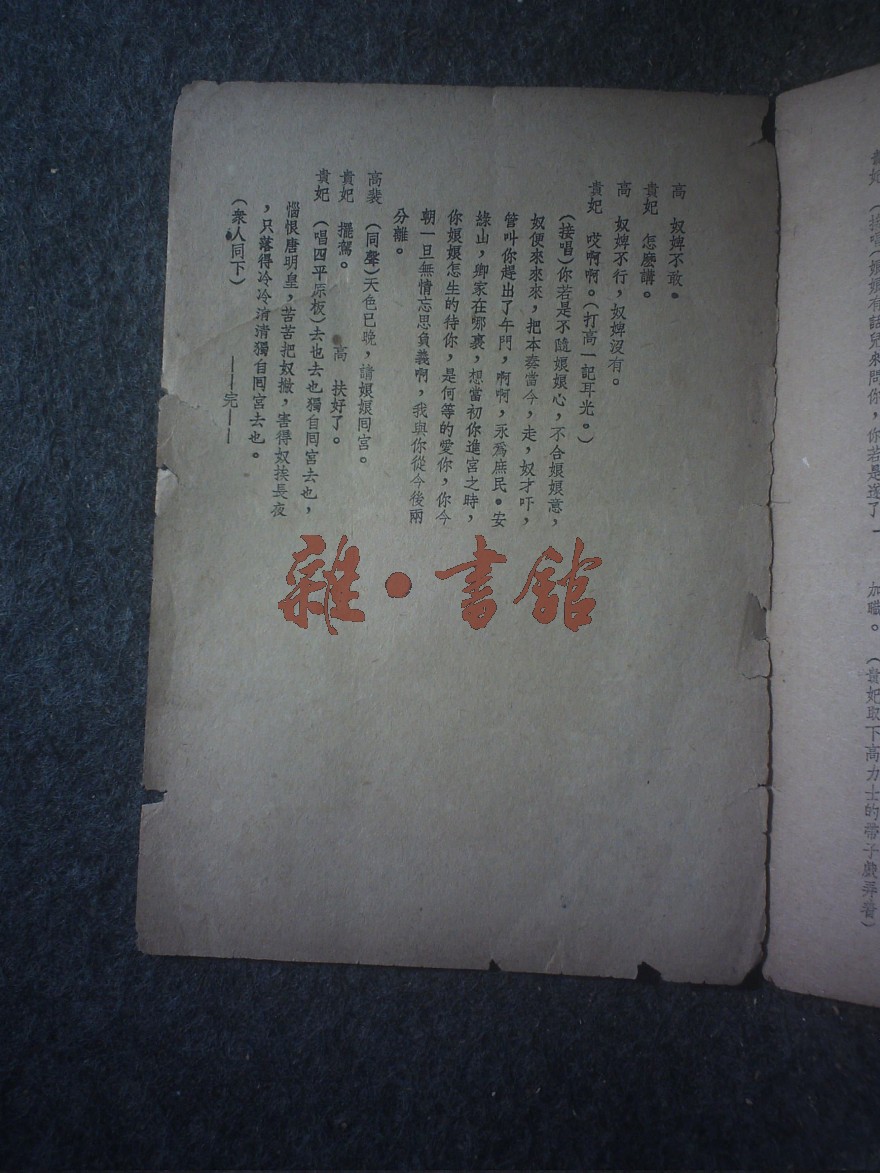 貴妃 (接唱)娘娘有話兒來問你,你若是遂了一
加職。 (貴妃取下高力士的帶子戲弄着)
高 奴婢不敢。
貴妃 怎麽講。
高 奴婢不行,奴婢沒有。
貴妃 哎啊啊。(打高一記耳光。)
(接唱)你若是不隨娘娘心,不合娘娘意,
奴便來來來,把本奏當今,走,奴才吓,
管叫你趕出了午門,啊啊,永爲庶民。安
綠山,卿家在哪裏,想當初你進宮之時,
你娘娘怎生的待你,是何等的愛你,你今
朝一旦無情忘思負義啊,我與你從今後兩
分離。
高裴 (同聲)天色已晚,請娘娘囘宮。
貴妃 擺駕。 高 扶好了。
貴妃 (唱四平原板)去也去也獨自囘宮去也,
惱恨唐明皇,苦苦把奴撇,害得奴挨長夜
,只落得冷冷清清獨自囘宮去也。
(衆人同下)
——完——
雜·書館